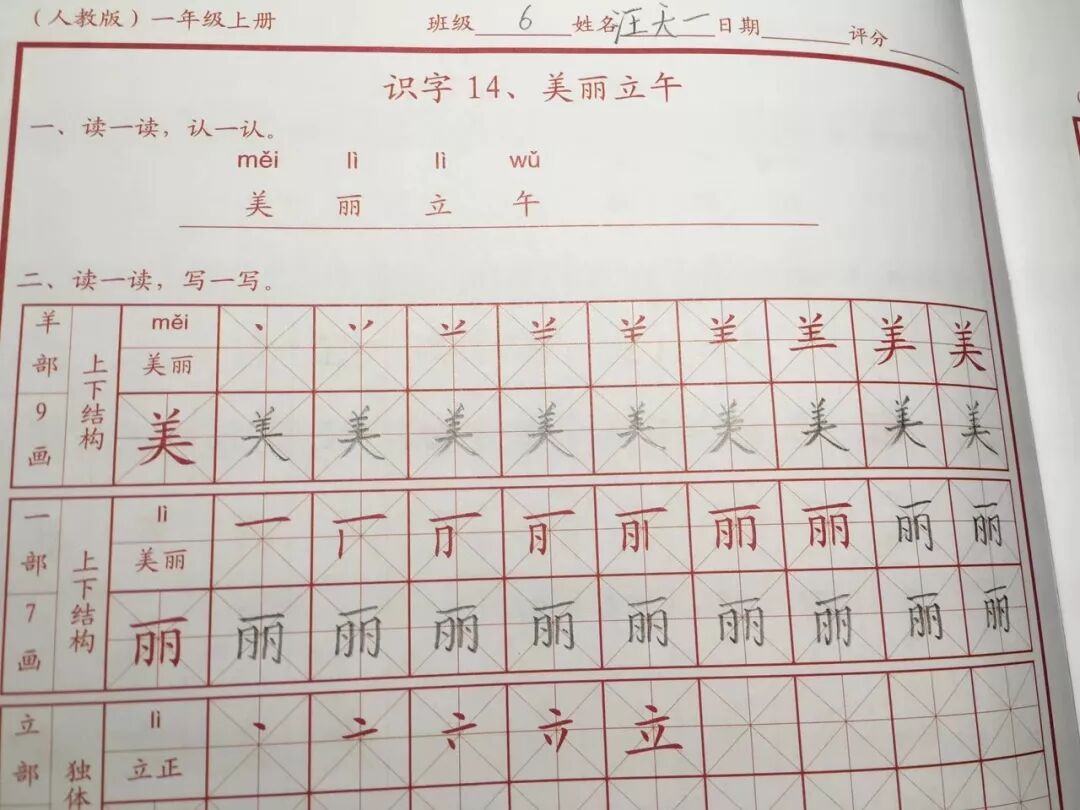 （人教版）一年级上册 班级 6 姓名 汪天一 日期 评分
识字 14、美丽立午
一、读一读，认一认。
měi lì lì wǔ
美 丽 立 午
二、读一读，写一写。
羊部9画 上下结构 měi 美丽 美
美 美 美 美 美 美 美 美 美 美
一部7画 上下结构 lì 美丽 丽 丽 丽
丽 丽 丽 丽 丽 丽 丽 丽 丽 丽
立部 独体 lì 立正 立